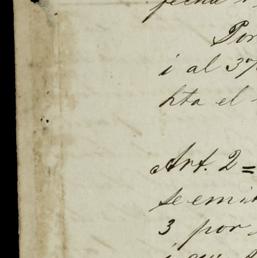 fecha
Por
i al 3%
hta el
Art. 2=
se emi
3 por
i que